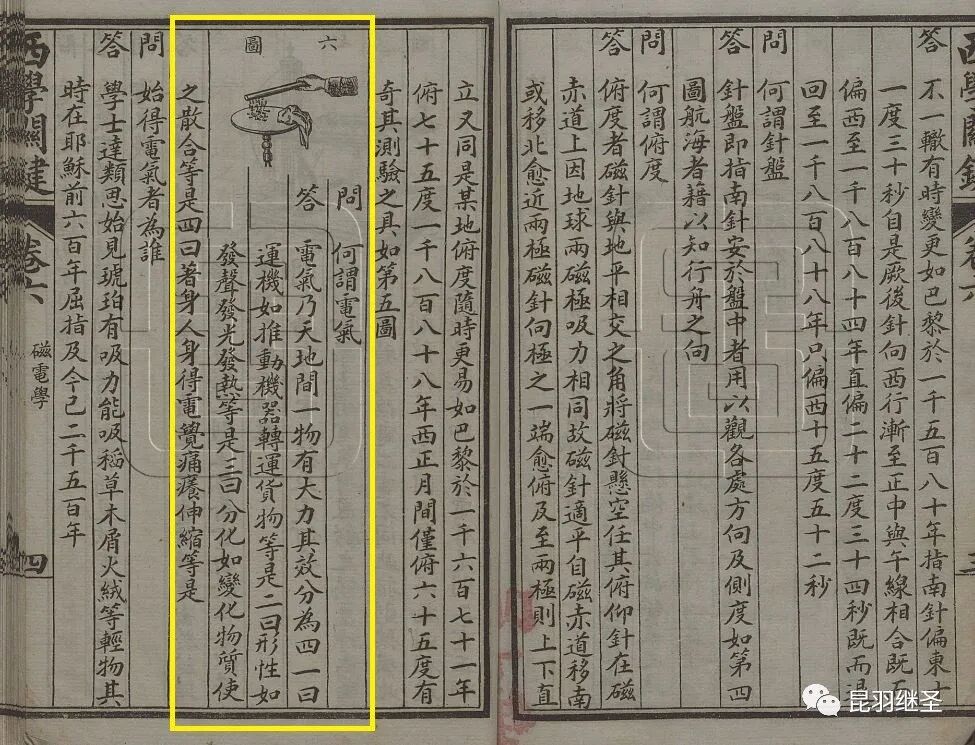 答 不一轍有時變更如巴黎於一千五百八十年指南針偏東十
一度三十秒自是厥後針向西行漸至正中與午線相合既
偏西至一千八百八十四年直偏二十二度三十四秒既而退
回至一千八百八十八年只偏西十五度五十二秒
問 何謂針盤
答 針盤即指南針安於盤中者用以觀各處方向及側度如第四
圖航海者藉以知行舟之向
問 何謂俯度
答 俯度者磁針與地平相交之角將磁針懸空任其俯仰針在磁
赤道上因地球兩磁極吸力相同故磁針適平自磁赤道移南
或移北愈近兩極磁針向極之一端愈俯及至兩極則上下直
立又同是某地俯度隨時更易如巴黎於一千六百七十一年
俯七十五度一千八百八十八年西正月間僅俯六十五度有
奇其測驗之具如第五圖
六圖
問 何謂電氣
答 電氣乃天地間一物有大力其效分為四一曰
運機如推動機器轉運貨物等是二曰形性如
發聲發光發熱等是三曰分化如變化物質使
之散合等是四曰著身人身得電覺痛癢伸縮等是
問 始得電氣者為誰
答 學士達類思始見琥珀有吸力能吸稻草木屑火絨等輕物其
時在耶穌前六百年屈指及今已二千五百年
西學關鍵 卷六 磁電學 四
昆羽继圣